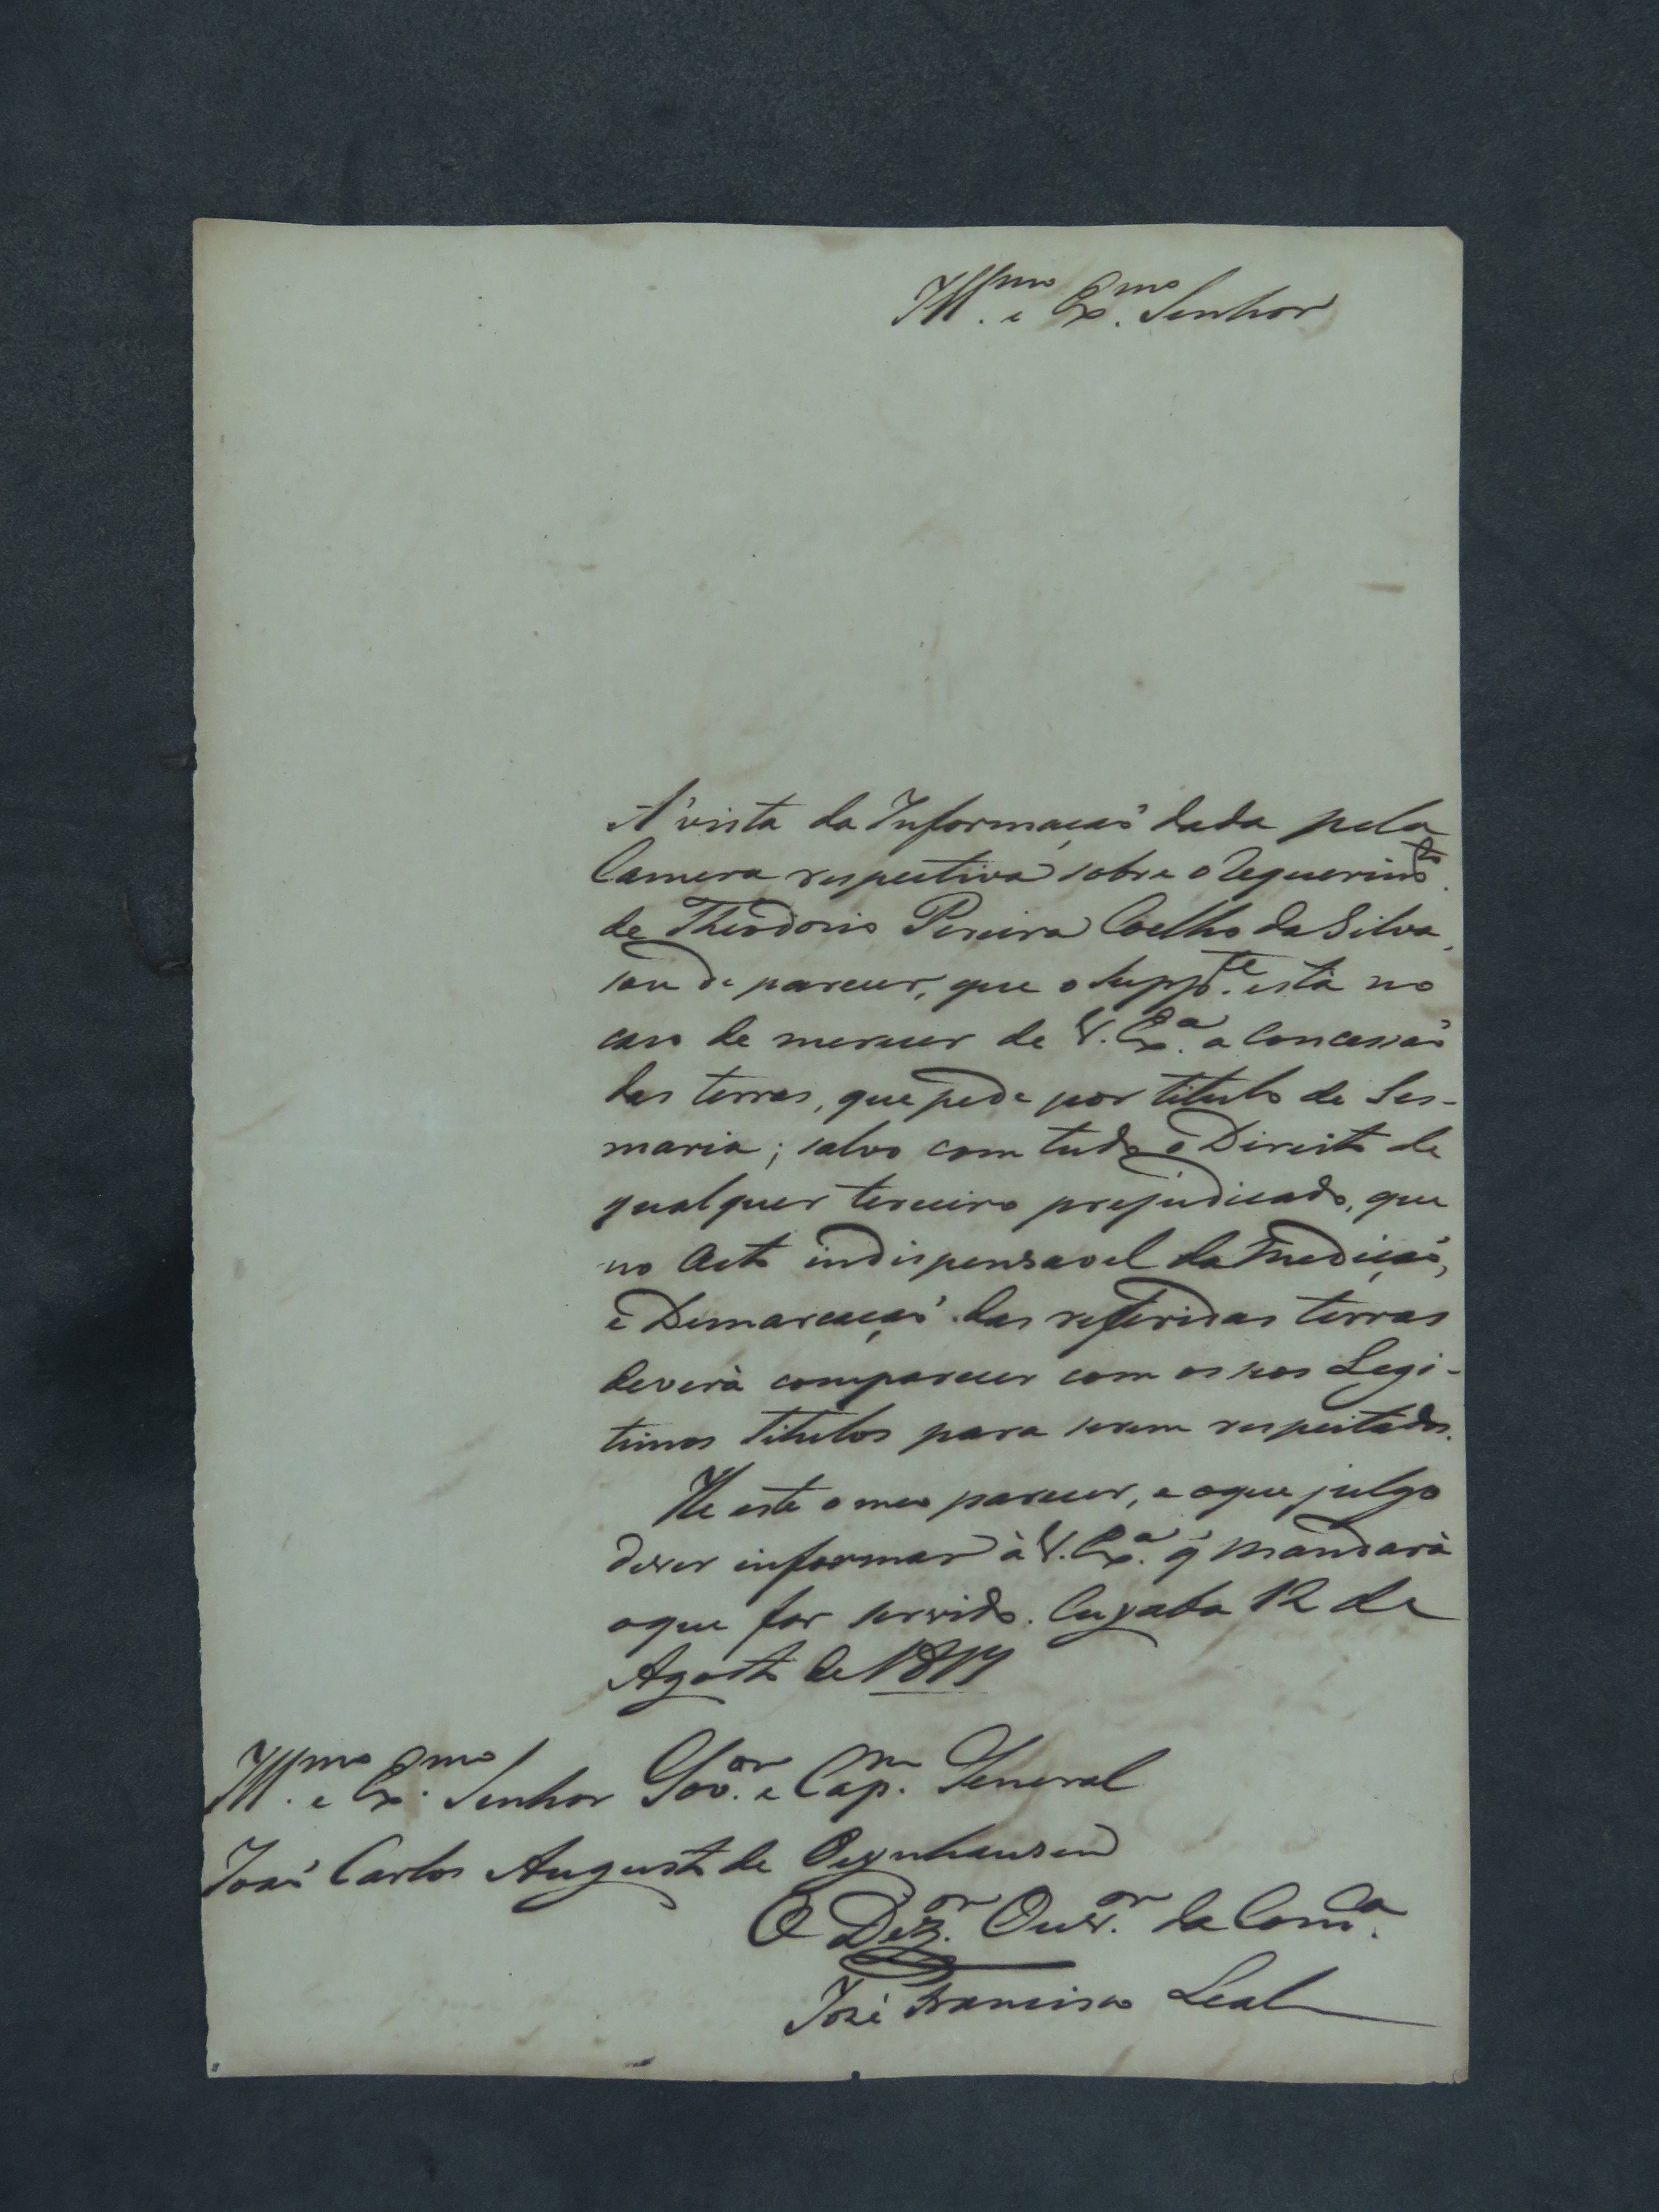 Ill.mo e Ex.mo Senhor
A' vista da Informaçaõ dada pela
Camera respectiva sobre o Requerim.to
de Theodorio Pereira Coelho da Silva,
sou de parecer, que o Supp.te està no
caso de merecer de V. Ex.a a Concessaõ
das terras, que pede por titulo de Ses-
maria; salvo com tudo o Direito de
qualquer terceiro prejudicado, que
no Acto indispensavel da Mediçaõ,
e Demarcaçaõ das referidas terras
deverà comparecer com os seos Legi-
timos Titulos para serem respeitados.
He este o meu parecer, e o que julgo
dever informar à V. Ex.a q' mandarà
o que for servido. Cuyaba 12 de
Agosto de 1817
Ill.mo e Ex.mo Senhor Gov.or e Cap.m General
Joaõ Carlos Augusto de Oeynhausen
O Dez.or Ouv.or da Com.ca
José Francisco Leal